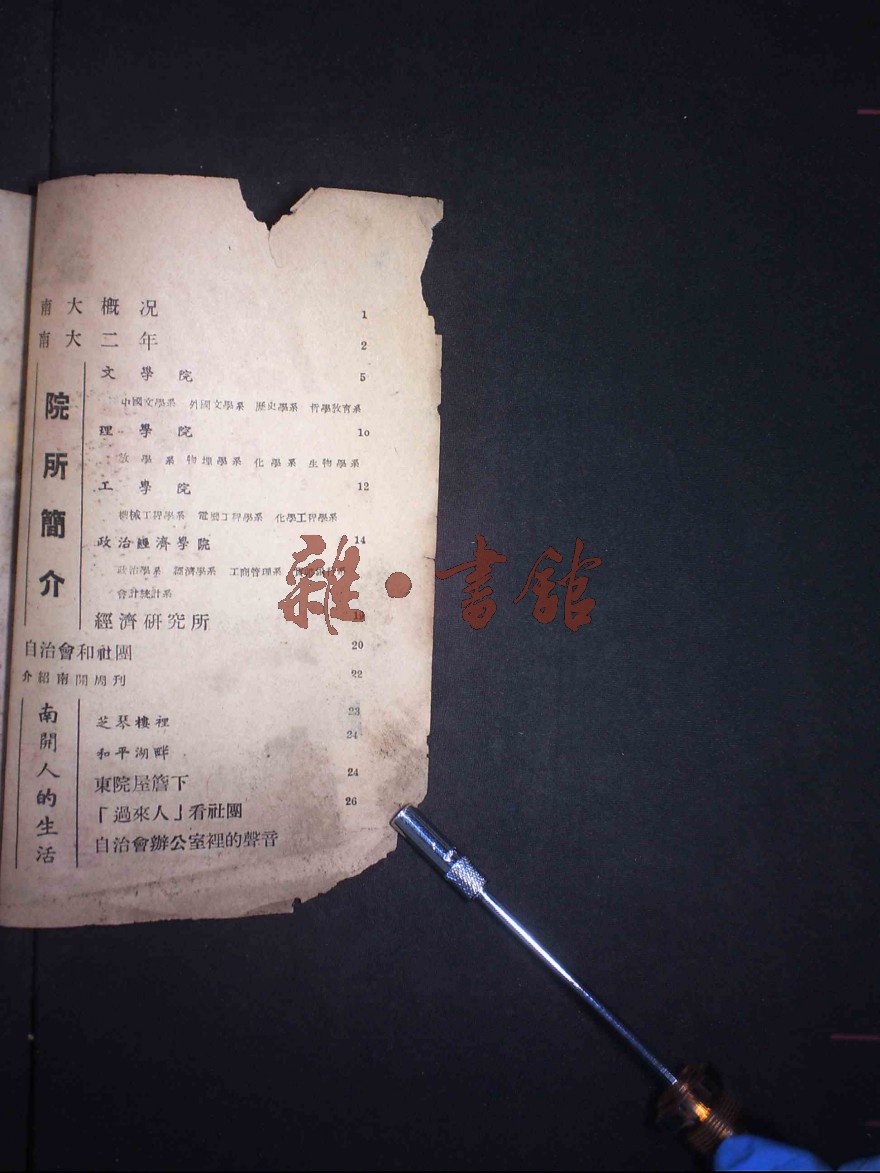 南大概况 1
南大二年 2
院所簡介
文學院 5
中國文學系 外國文學系 歷史學系 哲學教育系
理學院 10
數學系 物理學系 化學系 生物學系
工學院 12
機械工程學系 電機工程學系 化學工程學系
政治經濟學院 14
政治學系 經濟學系 工商管理系
會計統計系
經濟研究所
自治會和社團 20
介紹南開周刊 22
南開人的生活
芝琴樓裡 23
和平湖畔 24
東院屋簷下 24
「過來人」看社團 26
自治會辦公室裡的聲音
雜·書館